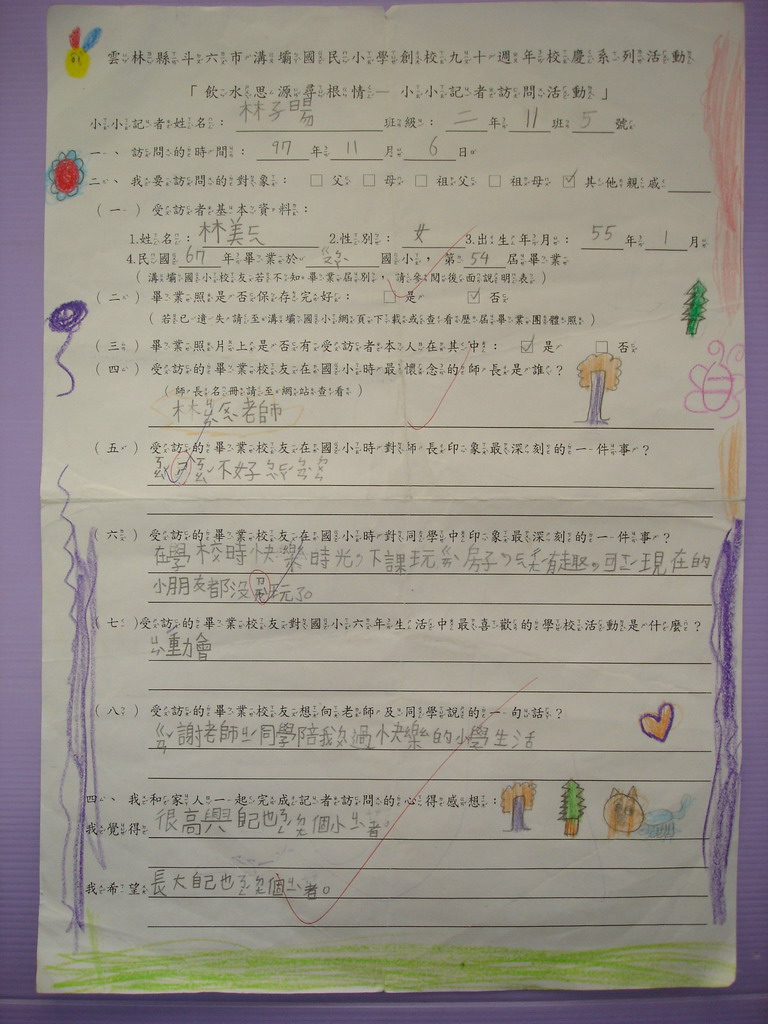 雲林縣斗六市溝壩國民小學創校九十週年校慶系列活動
「飲水思源尋根情— 小小記者訪問活動」
小小記者姓名： 林子暘 班級： 二 年 11 班 5 號
一、訪問的時間： 97 年 11 月 6 日
二、我要訪問的對象： □ 父 □ 母 □ 祖父 □ 祖母 ☑ 其他親戚
（一）受訪者基本資料：
1.姓名： 林美 2.性別： 女 3.出生年月： 55 年 1 月
4.民國 67 年畢業於 國小，第 54 屆畢業
（溝壩國小校友若不知畢業屆別，請參閱後面說明表）
（二）畢業照是否保存完好： □ 是 ☑ 否
（若已遺失請至溝壩國小網頁下載或查看歷屆畢業團體照）
（三）畢業照片上是否有受訪者本人在其中： ☑ 是 □ 否
（四）受訪的畢業校友在國小時最懷念的師長是誰？
（師長名冊請至網站查看）
林 老師
（五）受訪的畢業校友在國小時對師長印象最深刻的一件事？
不好
（六）受訪的畢業校友在國小時對同學中印象最深刻的一件事？
在學校時快樂時光，下課玩 房子， 有趣。可 現在的
小朋友都沒 玩了。
（七）受訪的畢業校友對國小六年生活中最喜歡的學校活動是什麼？
動會
（八）受訪的畢業校友想向老師及同學說的一句話？
ㄍㄢˇ謝老師 同學陪我 過快樂的小學生活
四、我和家人一起完成記者訪問的心得感想：
我覺得 很高興自己也 個小 者。
我希望 長大自己也 個 者。